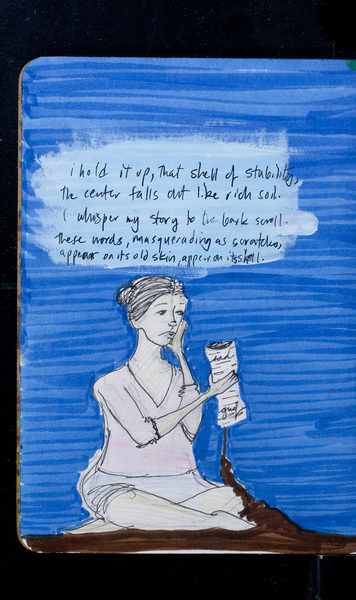 i hold it up, that shell of stability,
the center falls out like rich soil.
i whisper my story to the bark scroll.
these words, masquerading as scratches,
appear on its old skin, appear on its shell.
sad